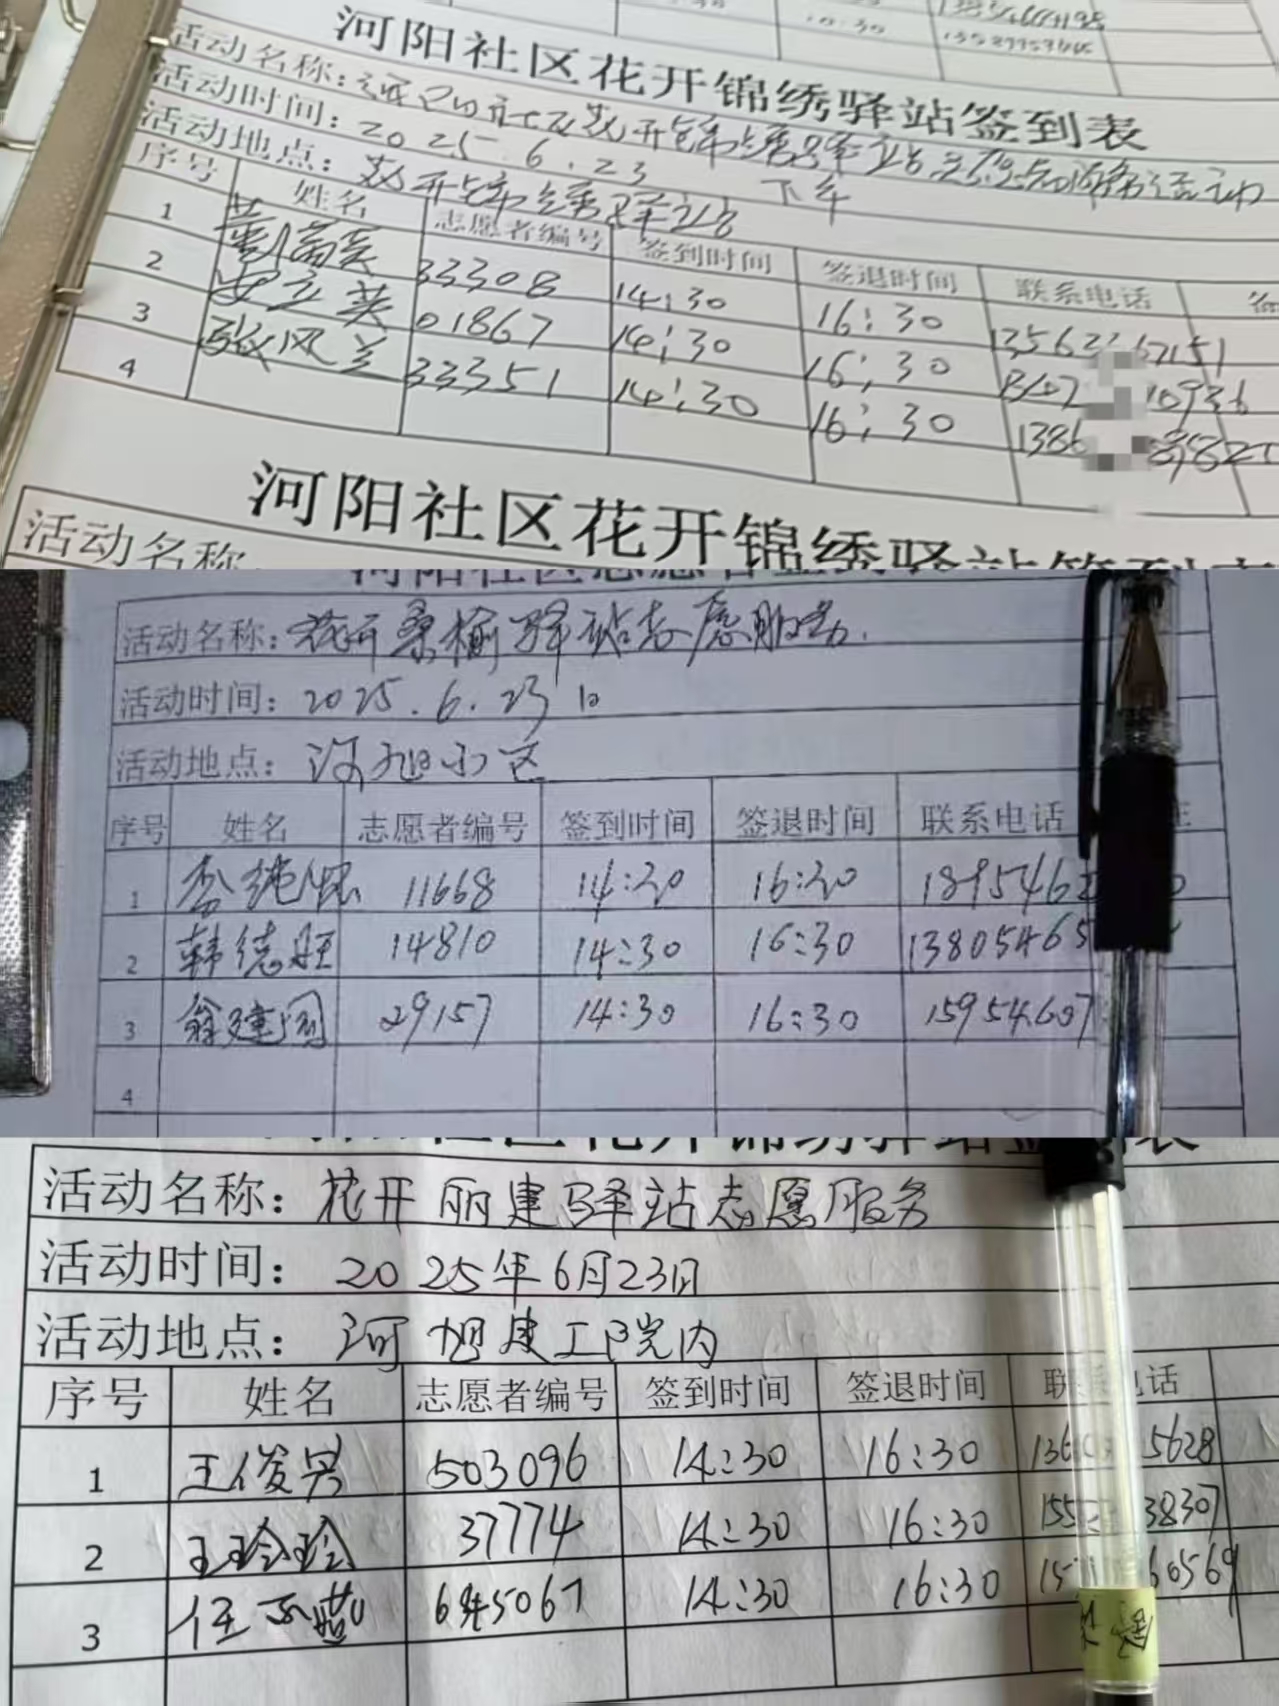 河阳社区花开锦绣驿站签到表
活动名称:河阳社区花开锦绣驿站志愿
活动时间:2025.6.23 下午
活动地点:花开锦绣驿站
序号 姓名 志愿者编号 签到时间 签退时间 联系电话
1 33308 14:30 16:30
2 安立英 01867 14:30 16:30
3 张风兰 33351 14:30 16:30
4
河阳社区花开锦绣驿站签到表
活动名称:
活动名称:花开桑榆驿站志愿服务.
活动时间:2025.6.23日
活动地点:河旭小区
序号 姓名 志愿者编号 签到时间 签退时间 联系电话
1 李纯 11668 14:30 16:30 1895462
2 韩德旺 14810 14:30 16:30 13805465
3 翁建国 29157 14:30 16:30 15954607
4
活动名称:花开丽建驿站志愿服务
活动时间:2025年6月23日
活动地点:河旭建工院内
序号 姓名 志愿者编号 签到时间 签退时间 联系电话
1 王俊男 503096 14:30 16:30 5628
2 王玲玲 37774 14:30 16:30 38307
3 任 14:30 16:30 60569